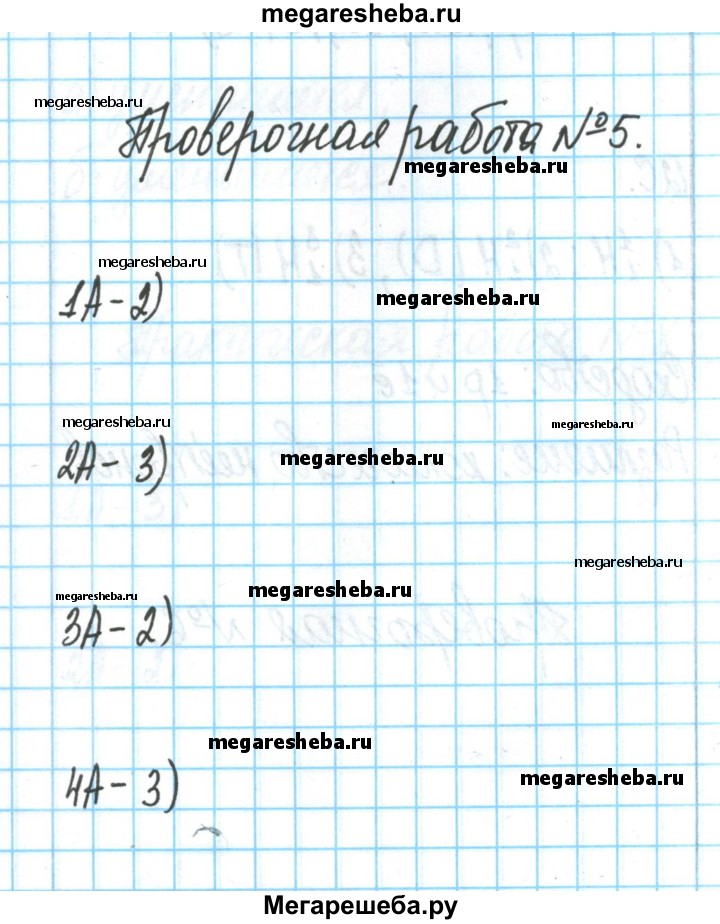 megaresheba.ru
megaresheba.ru
Проверочная работа №5.
megaresheba.ru
megaresheba.ru
1А - 2)
megaresheba.ru
megaresheba.ru
megaresheba.ru
2А - 3)
megaresheba.ru
megaresheba.ru
megaresheba.ru
megaresheba.ru
3А - 2)
megaresheba.ru
4А - 3)
megaresheba.ru
Мегарешеба.ру